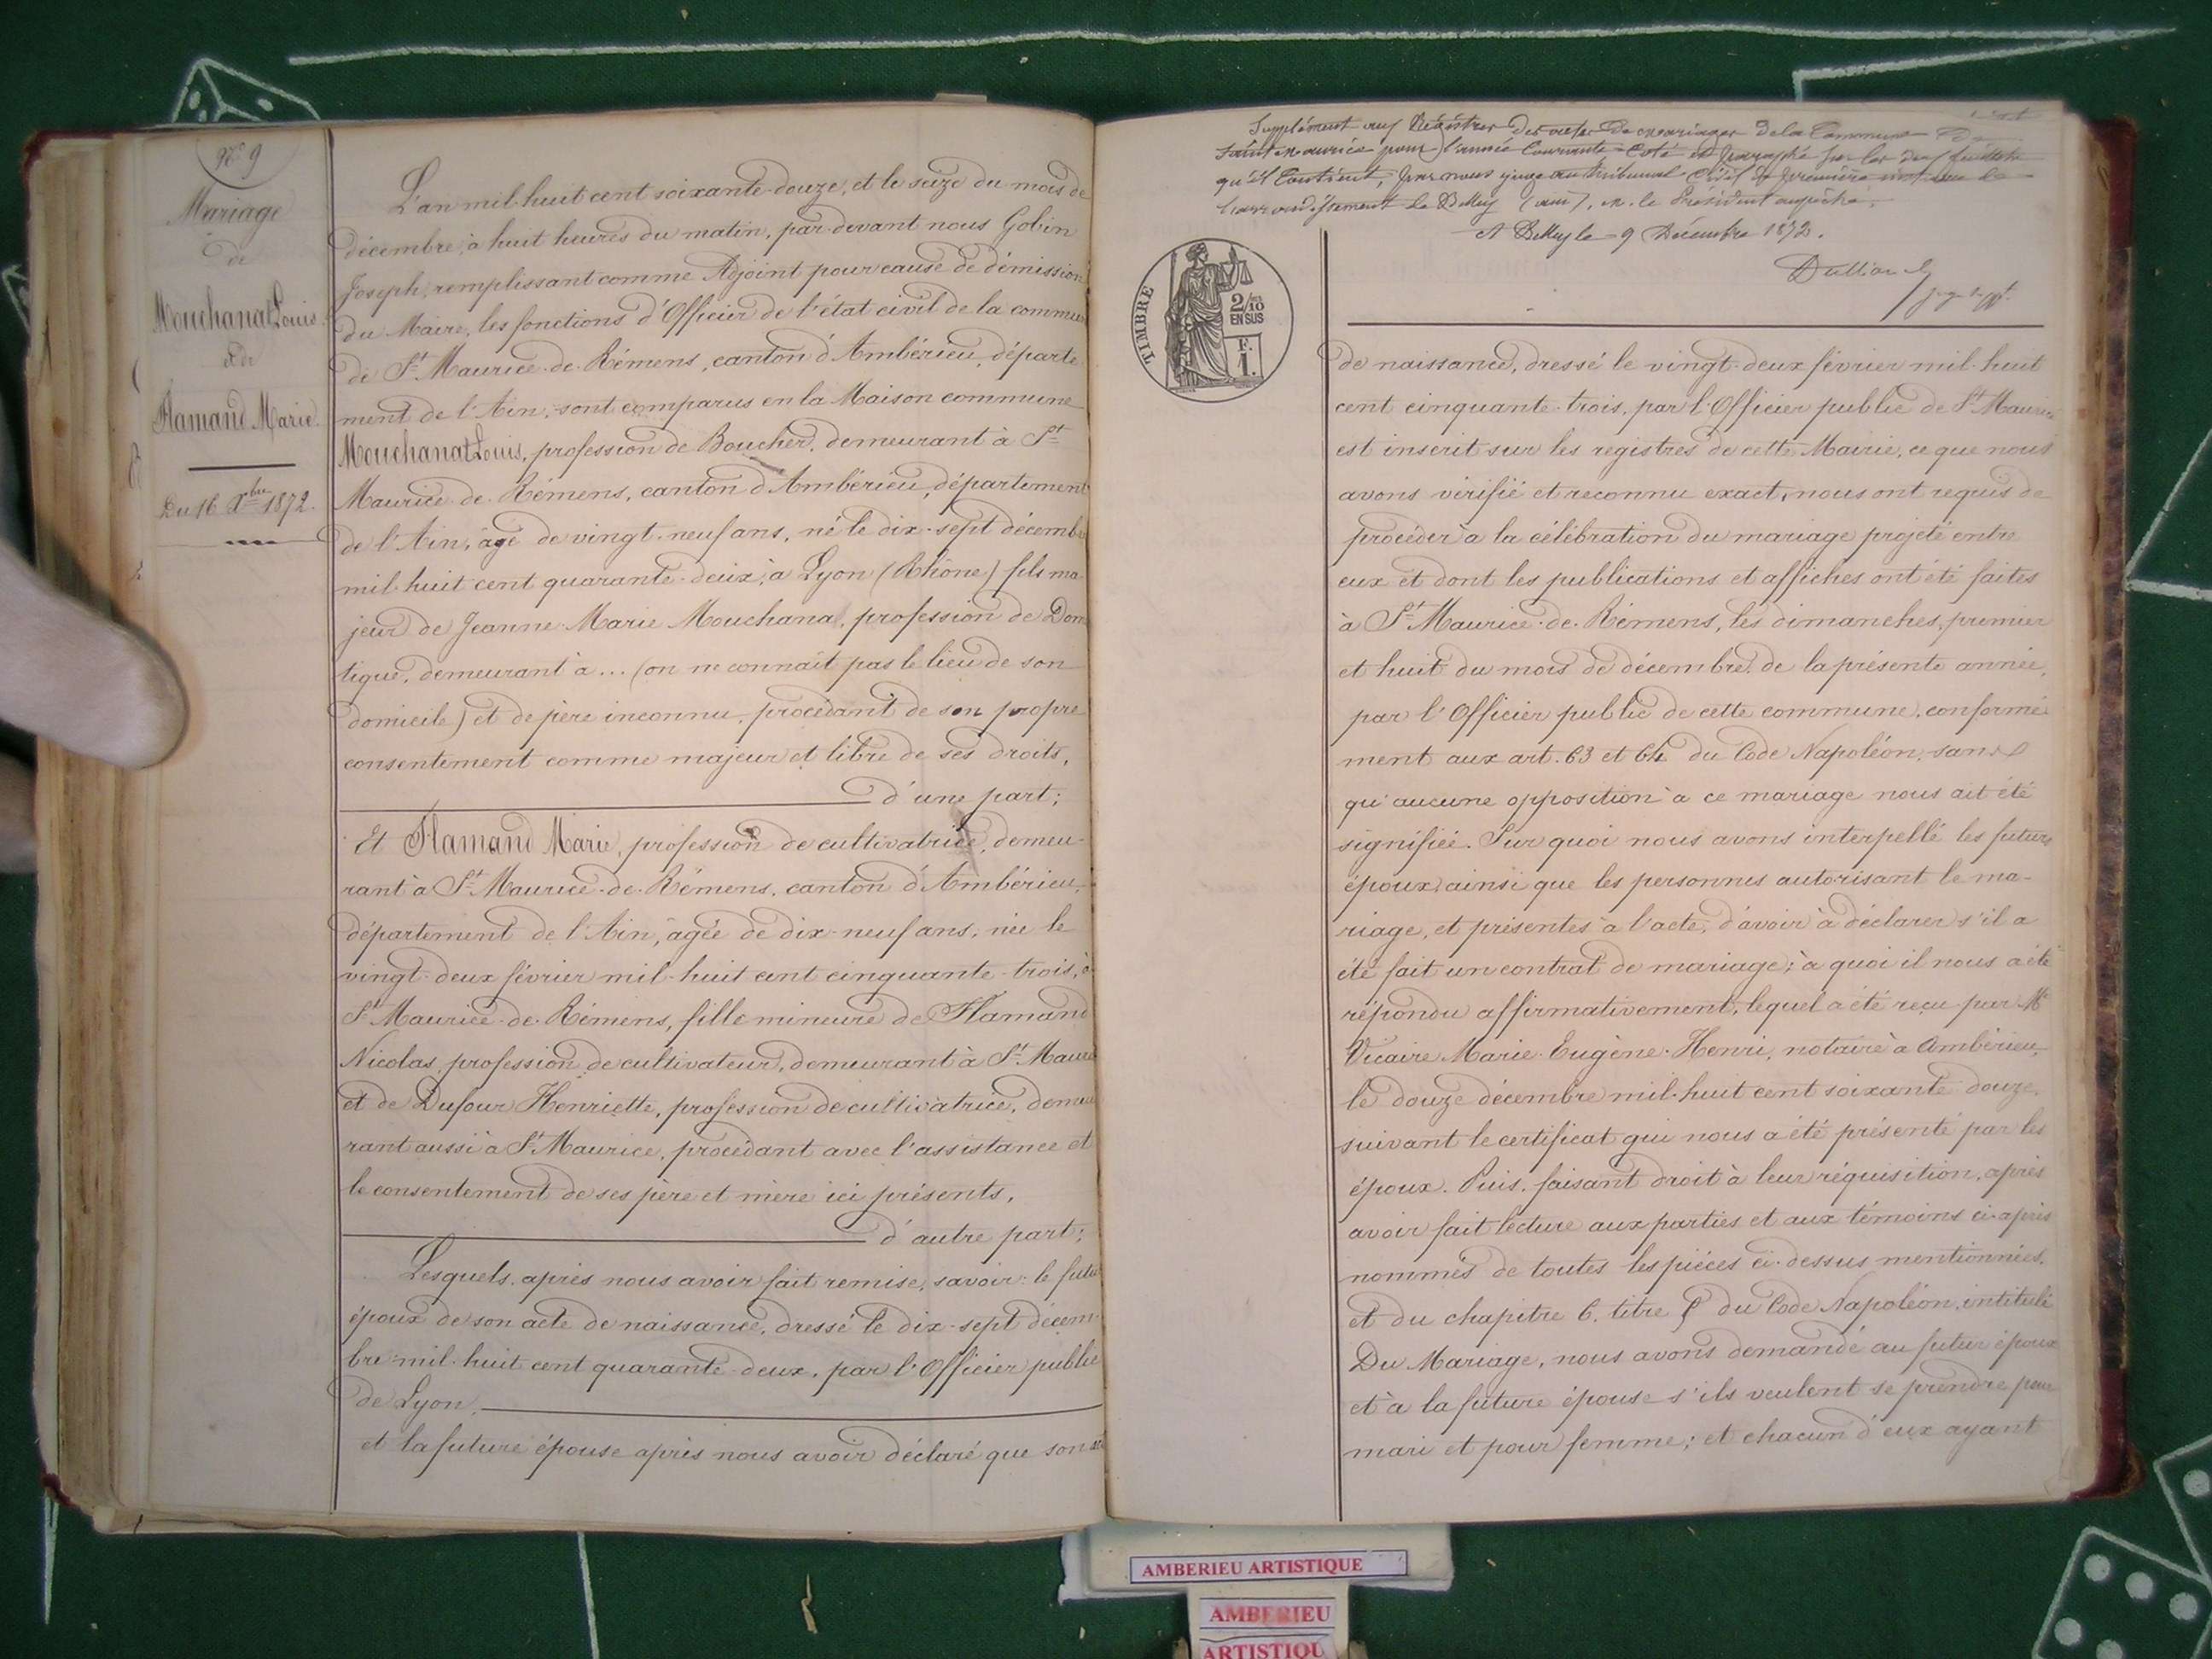 No 9
Mariage
de
Mouchanat Louis.
et de
Flamand Marie.
Du 16 Xbre 1872.
L'an mil-huit cent soixante-douze, et le seize du mois de
décembre, à huit heures du matin, par-devant nous Gobin
Joseph, remplissant comme Adjoint pour cause de démission
du Maire, les fonctions d'Officier de l'état civil de la commu
de St Maurice-de-Rémens, canton d'Ambérieu, départe
ment de l'Ain, sont comparus en la Maison commune
Mouchanat Louis, profession de Boucher, demeurant à St
Maurice-de-Rémens, canton d'Ambérieu, département
de l'Ain, âgé de vingt-neuf ans, né le dix-sept décemb
mil-huit cent quarante-deux, à Lyon (Rhône) fils ma
jeur de Jeanne-Marie Mouchanat, profession de Dom
tique, demeurant à... (on ne connaît pas le lieu de son
domicile) et de père inconnu, procédant de son propre
consentement comme majeur et libre de ses droits,
d'une part;
Et Flamand Marie, profession de cultivatrice, demeu-
rant à St Maurice-de-Rémens, canton d'Ambérieu,
département de l'Ain, âgée de dix-neuf ans, née le
vingt-deux février mil-huit cent cinquante-trois, à
St Maurice-de-Rémens, fille mineure de Flamand
Nicolas, profession de cultivateur, demeurant à St Mauri
et de Dufour Henriette, profession de cultivatrice, demeu
rant aussi à St Maurice, procédant avec l'assistance et
le consentement de ses père et mère ici présents,
d'autre part;
Lesquels, après nous avoir fait remise, savoir: le futu
époux de son acte de naissance, dressé le dix-sept décem-
bre mil-huit cent quarante-deux, par l'Officier public
de Lyon,
et la future épouse après nous avoir déclaré que son
Supplément aux Registres des actes de mariages de la Commune de
Saint Maurice pour l'année Courante Coté et paraphé par les deux feuillets
qu'il Contient, par nous juge au tribunal Civil de première instance de
l'arrondissement de Belley (ain), M. le Président empêché.
A Belley le 9 Décembre 1872.
juge suppt.
TIMBRE
2/10
EN SUS
F.
1.
de naissance, dressé le vingt-deux février mil-huit
cent cinquante-trois, par l'Officier public de St Mauri
est inscrit sur les registres de cette Mairie, ce que nous
avons vérifié et reconnu exact, nous ont requis de
procéder à la célébration du mariage projeté entre
eux et dont les publications et affiches ont été faites
à St Maurice-de-Rémens, les dimanches, premier
et huit du mois de décembre de la présente année,
par l'Officier public de cette commune, conformé-
ment aux art. 63 et 64 du Code Napoléon, sans
qu'aucune opposition à ce mariage nous ait été
signifiée. Sur quoi nous avons interpellé les futurs
époux, ainsi que les personnes autorisant le ma-
riage, et présentes à l'acte, d'avoir à déclarer s'il a
été fait un contrat de mariage; à quoi il nous a été
répondu affirmativement, lequel a été reçu par Me
Vicaire Marie-Eugène-Henri, notaire à Ambérieu,
le douze décembre mil-huit cent soixante-douze,
suivant le certificat qui nous a été présenté par les
époux. Puis, faisant droit à leur réquisition, après
avoir fait lecture aux parties et aux témoins ci-après
nommés de toutes les pièces ci-dessus mentionnées,
et du chapitre 6, titre 5 du Code Napoléon, intitulé
Du Mariage, nous avons demandé au futur époux
et à la future épouse s'ils veulent se prendre pour
mari et pour femme; et chacun d'eux ayant
AMBERIEU ARTISTIQUE
AMBERIEU
ARTISTIQU